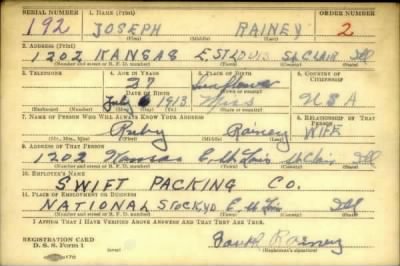 SERIAL NUMBER 1. NAME (Print) ORDER NUMBER
192 JOSEPH RAINEY 2
(First) (Middle) (Last)
2. ADDRESS (Print)
1202 KANSAS E. ST LOUIS St. CLAIR Ill
(Number and street or R. F. D. number) (Town) (County) (State)
3. TELEPHONE 4. AGE IN YEARS 5. PLACE OF BIRTH 6. COUNTRY OF CITIZENSHIP
Sunflower
DATE OF BIRTH (Town or county)
July 1913 Miss U S A
(Exchange) (Number) (Mo.) (Day) (Yr.) (State or country)
7. NAME OF PERSON WHO WILL ALWAYS KNOW YOUR ADDRESS 8. RELATIONSHIP OF THAT PERSON
Ruby Rainey WIFE
(Mr., Mrs., Miss) (First) (Middle) (Last)
9. ADDRESS OF THAT PERSON
1202 Kansas E. St. Louis St Clair Ill
(Number and street or R. F. D. number) (Town) (County) (State)
10. EMPLOYER'S NAME
SWIFT PACKING CO.
11. PLACE OF EMPLOYMENT OR BUSINESS
NATIONAL STOCKYD E. St. Louis Ill
(Number and street or R. F. D. number) (Town) (County) (State)
I AFFIRM THAT I HAVE VERIFIED ABOVE ANSWERS AND THAT THEY ARE TRUE.
REGISTRATION CARD
D. S. S. Form 1 Rainey
(Registrant's signature)